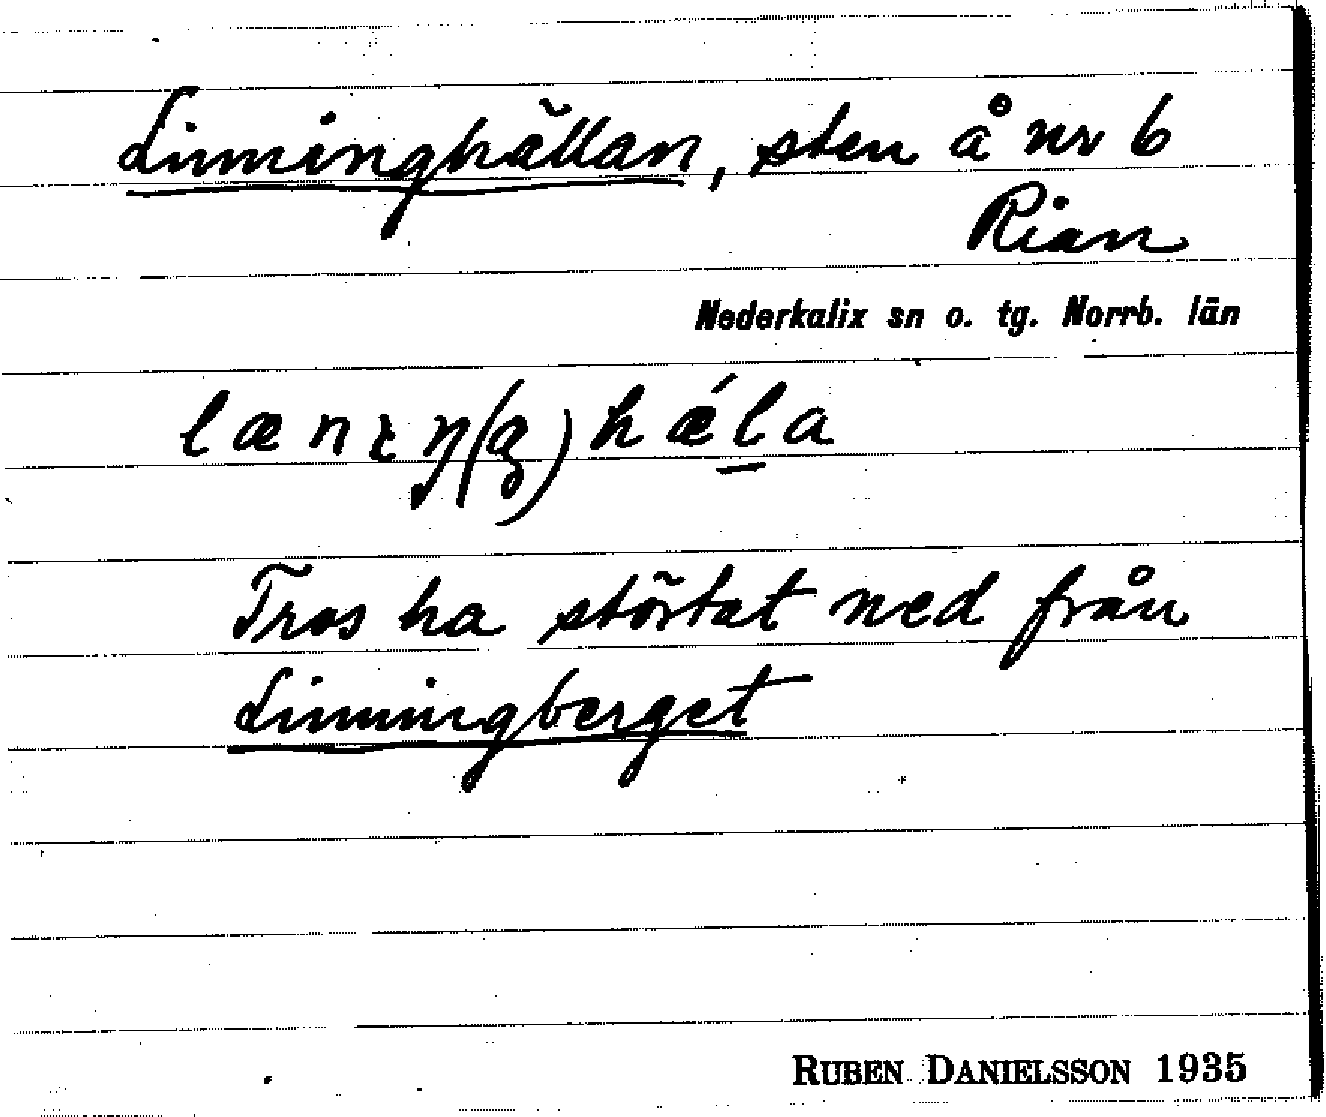 Linninghällan, sten å nr 6
Rian
Nederkalix sn o. tg. Norrb. län
lænɩŋ(g)hǽla
Tros ha störtat ned från
Linningberget
RUBEN DANIELSSON 1935